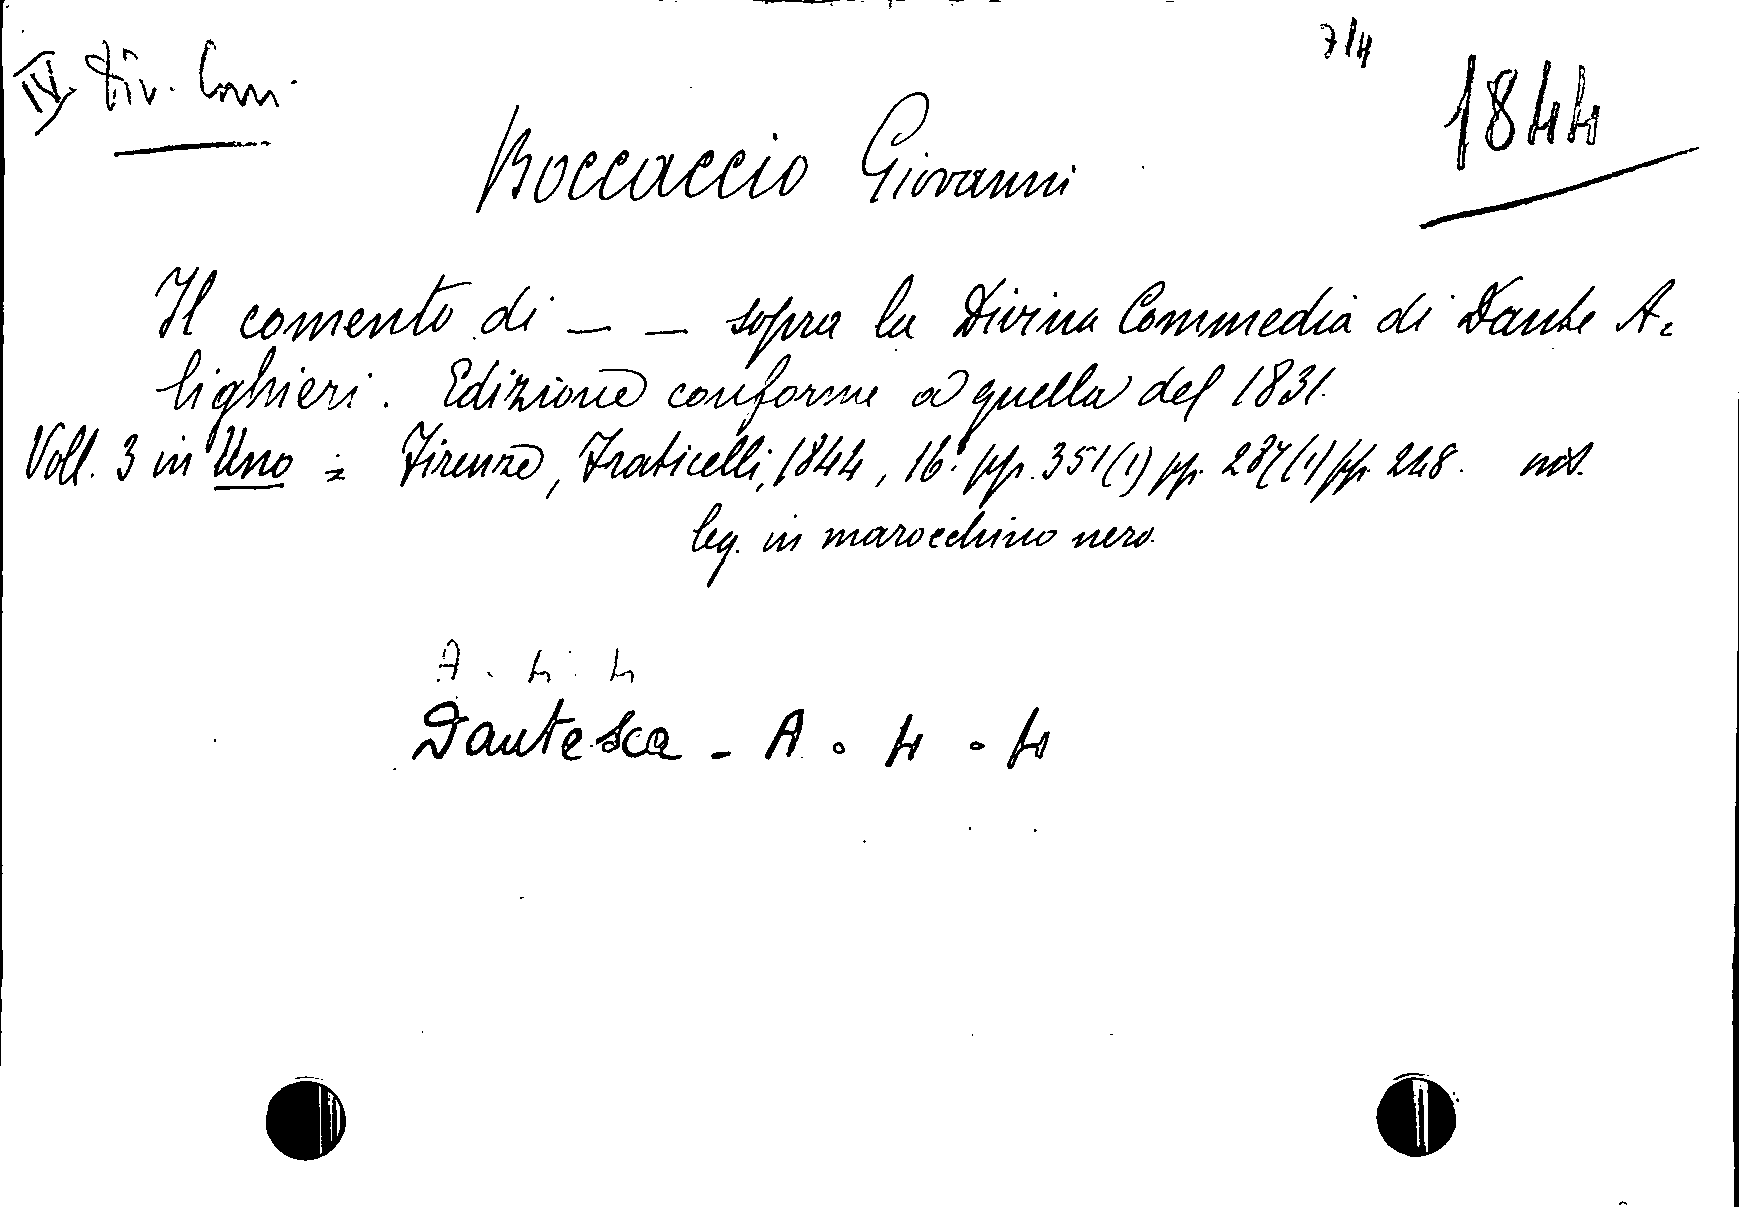 IV Div. Com.
7/4
1844
Boccaccio Giovanni
Il comento di — — sopra la Divina Commedia di Dante A-
lighieri. Edizione conforme a quella del 1831.
Voll. 3 in Uno = Firenze, Fraticelli, 1844, 16° pp. 351(1) pp. 287(1) pp. 248.
leg. in marocchino nero.
A. 4. 4
Dantesca - A. 4. 4